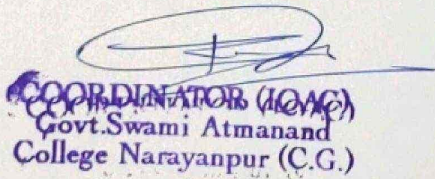 COORDINATOR (IQAC)
Govt.Swami Atmanand
College Narayanpur (C.G.)